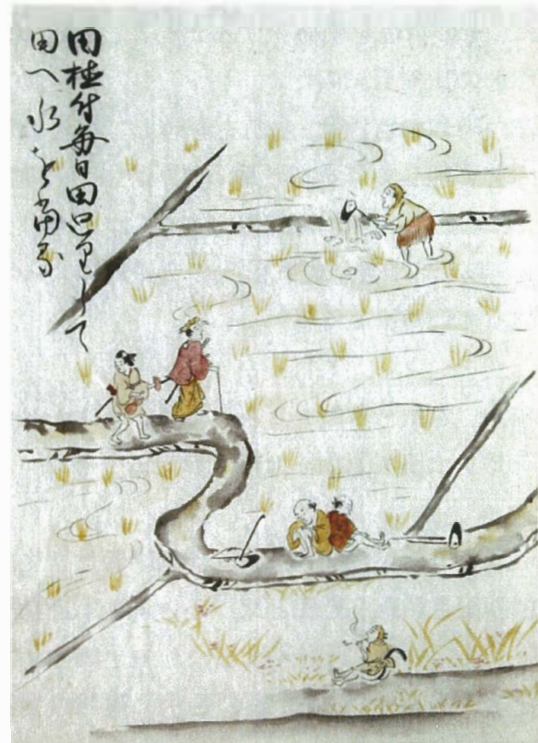 田植付毎日田巡りして
田へ水を当る